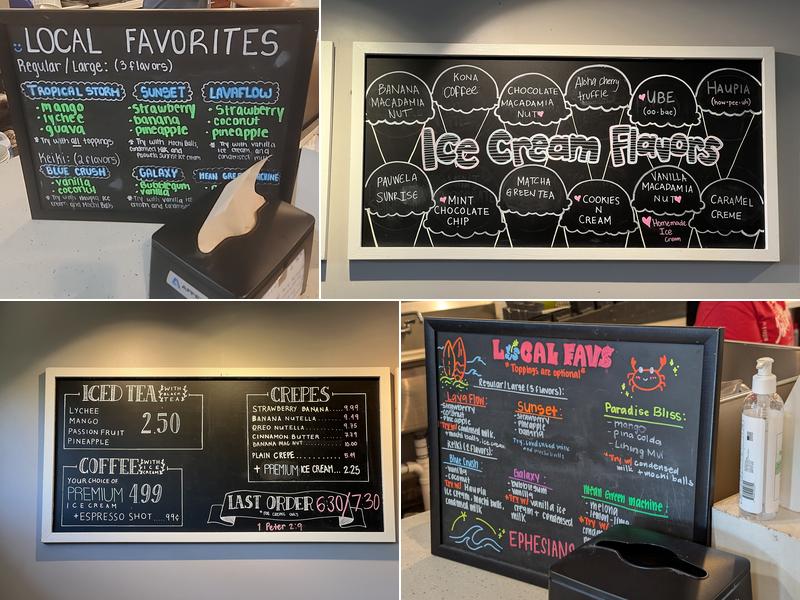 LOCAL FAVORITES
Regular / Large: (3 flavors)
TROPICAL STORM
• mango
• lychee
• guava
* Try with all toppings
SUNSET
• strawberry
• banana
• pineapple
* Try with Mochi Balls,
condensed milk, and
Pauwela Sunrise ice cream
LAVAFLOW
• Strawberry
• coconut
• pineapple
* Try with vanilla
ice cream, and
condensed milk
Keiki: (2 flavors)
BLUE CRUSH
• vanilla
• coconut
* Try with Haupia, Ice
cream and Mochi Balls
GALAXY
• Bubblegum
• vanilla
* Try with vanilla
ice cream and
MEAN GREEN MACHINE
BANANA
MACADAMIA
NUT
KONA
COFFEE
CHOCOLATE
MACADAMIA
NUT
Aloha Cherry
truffle
UBE
(oo-bae)
HAUPIA
(how-pee-uh)
Ice Cream Flavors
PAUWELA
SUNRISE
MINT
CHOCOLATE
CHIP
MATCHA
GREEN TEA
COOKIES
N
CREAM
VANILLA
MACADAMIA
NUT
Homemade
Ice
Cream
CARAMEL
CREME
ICED TEA WITH BLACK TEA
LYCHEE
MANGO
PASSION FRUIT
PINEAPPLE
2.50
COFFEE WITH ICE CREAM
YOUR CHOICE OF
PREMIUM 4.99
ICE CREAM
+ ESPRESSO SHOT.....99¢
CREPES
STRAWBERRY BANANA....9.99
BANANA NUTELLA....9.49
OREO NUTELLA....9.75
CINNAMON BUTTER....7.79
BANANA MAC NUT....10.00
PLAIN CREPE....5.49
+ PREMIUM ICE CREAM...2.25
LAST ORDER 6:30/7:30
* FOR CREPES ONLY
1 Peter 2:9
LOCAL FAVS
*Toppings are optional*
Regular/Large (3 flavors):
Lava Flow:
- strawberry
- coconut
- pineapple
Try w/ condensed milk,
+ mochi balls, ice cream
Sunset:
- strawberry
- pineapple
- banana
Try condensed milk
Paradise Bliss:
- mango
- pina colda
- Lihing Mui
*Try w/ condensed
milk + mochi balls
Keiki (2 flavors):
Blue Crush:
- vanilla
- coconut
Try w/ Haupia
ice cream, mochi balls,
condensed milk
Galaxy:
- bubblegum
- vanilla
*Try w/ vanilla ice
cream + condensed
milk
Mean Green Machine:
- melona
- lemon-lime
*Try w/
EPHESIANS